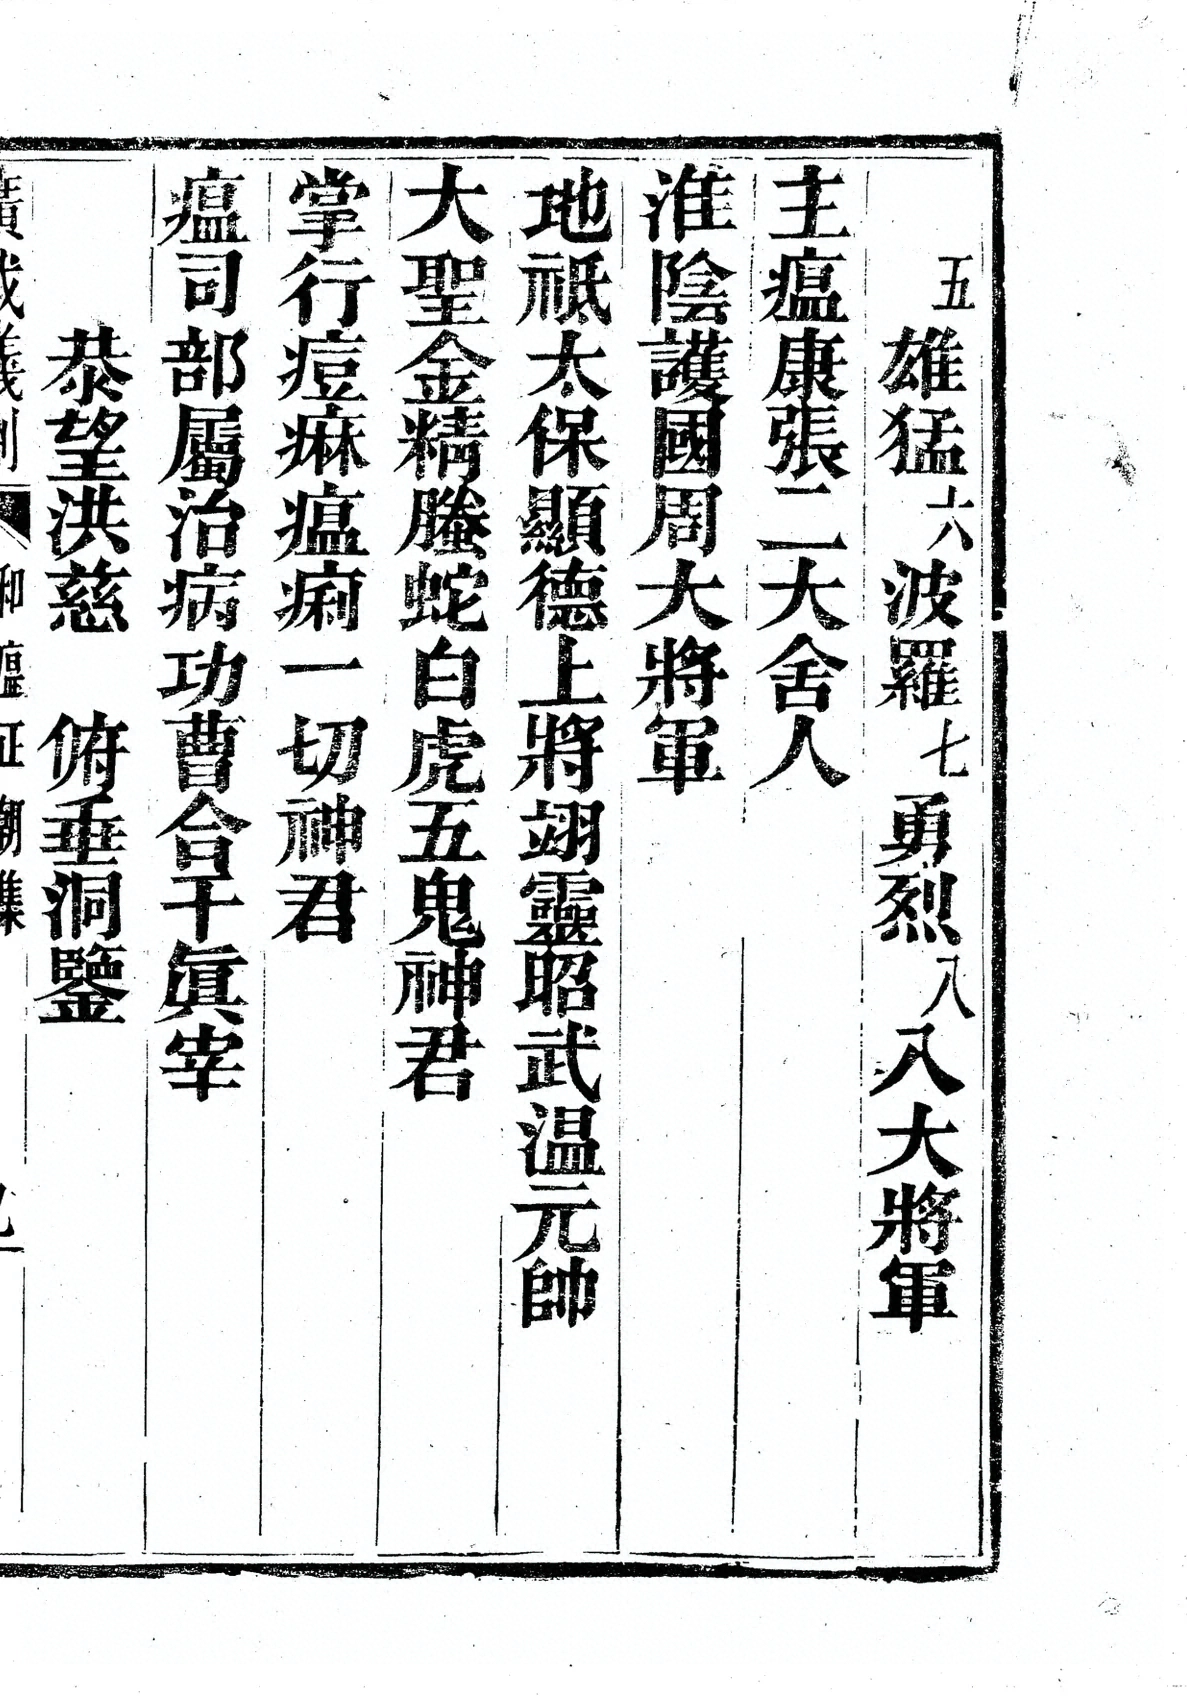 五雄猛六波羅七勇烈八八大將軍
主瘟康張二大舍人
淮陰護國周大將軍
地祇太保顯德上將翊靈昭武温元帥
大聖金精螣蛇白虎五鬼神君
掌行痘痳瘟痢一切神君
瘟司部屬治病功曹合千眞宰
恭望洪慈　俯垂洞鑒
廣成儀制　和瘟正朝集　九